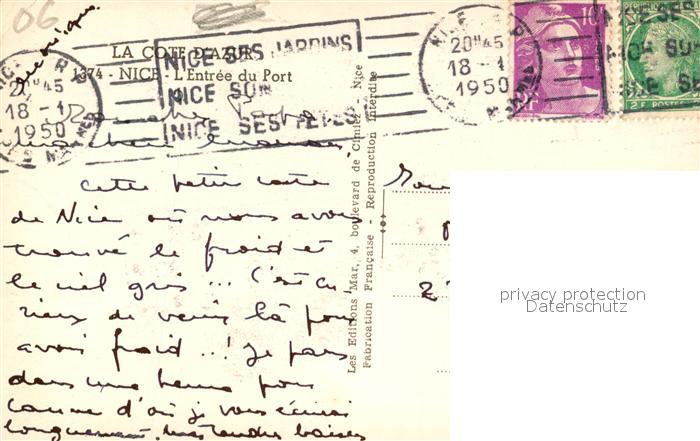 06
LA COTE D'AZUR
1374 - NICE - L'Entrée du Port
NICE SES JARDINS
NICE SON
NICE SES FÊTES
20H45
18 - 1
1950
20H45
18 - 1
1950
10F
2F POSTES
NICE SES
Cette petite carte
de Nice où nous avons
trouvé le froid et
le ciel gris ... C'est cu
rieux de venir là pour
avoir froid ..! Je pars
dans une heure pour
Canne d'où je vous écrirai
longuement, tendres baisers
Les Editions Mar, 4, boulevard de Cimiez - Nice
Fabrication Française - Reproduction Interdite
2
privacy protection
Datenschutz